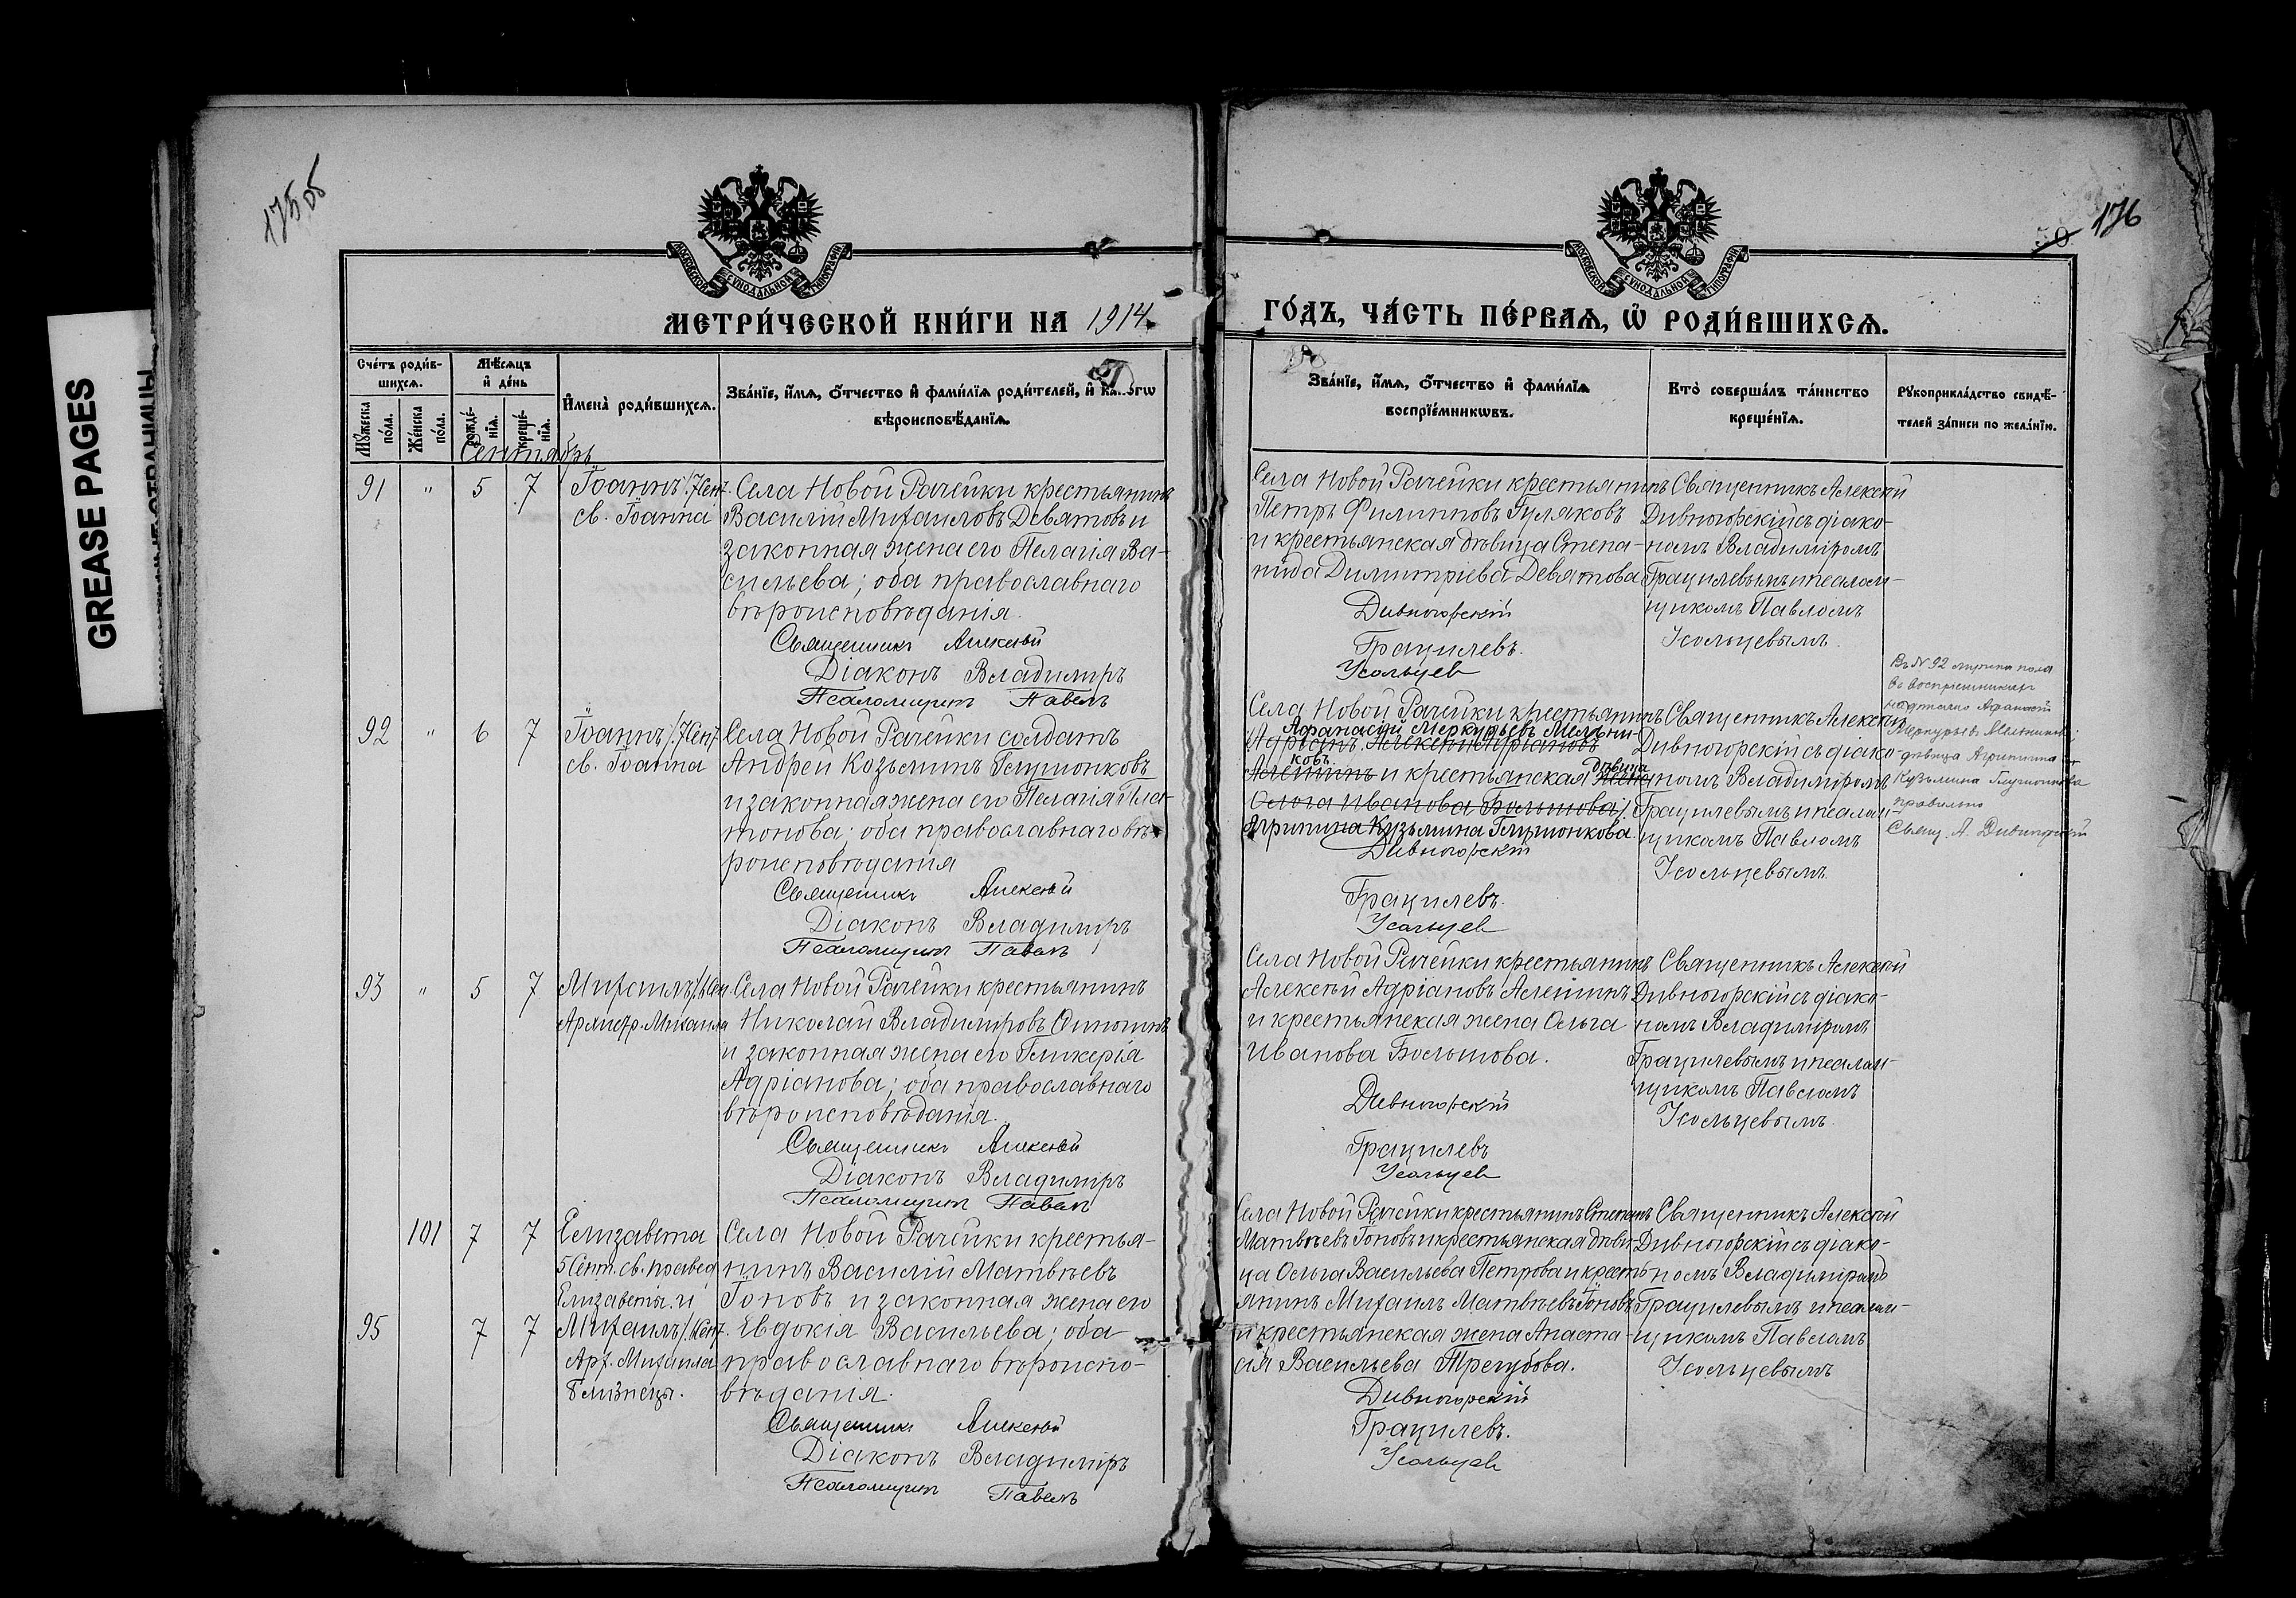 GREASE PAGES
176
50
МОСКОВСКОЙ СѴНОДАЛЬНОЙ ТИПОГРАФІИ
МОСКОВСКОЙ СѴНОДАЛЬНОЙ ТИПОГРАФІИ
МЕТРИ́ЧЕСКОЙ КНИ́ГИ НА 1914
ГО́ДЪ, ЧА́СТЬ ПЕ́РВАѦ, Ѽ РОДИ́ВШИХСѦ.
Сче́тъ роди́в-
шихсѧ.
Мꙋжеска по́ла.
Же́нска по́ла.
Мѣ́сѧцъ
и҆ де́нь
рожде́-
нїѧ.
креще́-
нїѧ.
И҆мена̀ роди́вшихсѧ.
Зва́нїе, и҆́мѧ, ѻ҆́тчество и҆ фами́лїѧ роди́телей, и҆ ка..огѡ
вѣроисповѣ́данїѧ.
Зва́нїе, и҆́мѧ, ѻ҆́тчество и҆ фами́лїѧ
воспрїе́мникѡвъ.
Кто̀ соверша́лъ та́инство
креще́нїѧ.
Рꙋкоприкла́дство свидѣ́-
телей за́писи по жела́нїю.
Сентябрь
91 " 5 7
Іоаннъ /7 Сент.
св. Іоанна
Села Новой Рачейки крестьянинъ
Василій Михаиловъ Девятовъ и
законная жена его Пелагія Ва-
сильева; оба православнаго
вѣроисповѣданія.
Священникъ Алексѣй
Діаконъ Владиміръ
Псаломщикъ Павелъ
Села Новой Рачейки крестьянинъ
Петръ Филипповъ Гуляковъ
и крестьянская дѣвица Степа-
нида Димитріева Девятова
Дивногорскій
Грацилевъ.
Усольцев
Священникъ Алексѣй
Дивногорскій съ діако-
номъ Владиміромъ
Грацилевымъ и псалом-
щикомъ Павломъ
Усольцевымъ.
92 " 6 7
Іоаннъ /7 Сент.
св. Іоанна
Села Новой Рачейки солдатъ
Андрей Козьминъ Глушонковъ
и законная жена его Пелагія Пла-
тонова; оба православнаго вѣ-
роисповѣданія
Священникъ Алексѣй
Діаконъ Владиміръ
Псаломщикъ Павелъ
Села Новой Рачейки крестьянинъ
Афанасій Меркурьевъ Мельни-
ковъ
Алешинъ и крестьянская дѣвица жена
Ольга Иванова Большова
Агрипина Кузьмина Глушонкова.
Дивногорскій
Грацилевъ.
Усольцев
Священникъ Алексѣй
Дивногорскій съ діако-
номъ Владиміромъ
Грацилевымъ и псалом-
щикомъ Павломъ
Усольцевымъ.
Въ № 92 мужска пола
въ воспріемникахъ
надписано Афанасій
Меркурьевъ Мельниковъ
дѣвица Агрипина
Кузьмина Глушонкова
правильно
Свящ. А. Дивногорскій
93 " 5 7
Михаилъ /6 Сен.
Архистр. Михаила
Села Новой Рачейки крестьянинъ
Николай Владиміровъ
и законная жена его Гликерія
Адріанова; оба православнаго
вѣроисповѣданія.
Священникъ Алексѣй
Діаконъ Владиміръ
Псаломщикъ Павелъ
Села Новой Рачейки крестьянинъ
Алексѣй Адріановъ Алешинъ
и крестьянская жена Ольга
Иванова Большова.
Дивногорскій
Грацилевъ
Усольцев
Священникъ Алексѣй
Дивногорскій съ діако-
номъ Владиміромъ
Грацилевымъ и псалом-
щикомъ Павломъ
Усольцевымъ.
101 7 7
Елизавета
5 Сент. св. правед
Елизаветы. и
95 7 7
Михаилъ /6 Сент.
Арх. Михаила
близнецы.
Села Новой Рачейки крестья-
нинъ Василій Матвѣевъ
Гоновъ и законная жена его
Евдокія Васильева; оба
православнаго вѣроиспо-
вѣданія.
Священникъ Алексѣй
Діаконъ Владиміръ
Псаломщикъ Павелъ
Села Новой Рачейки крестьянинъ Степанъ
Матвѣевъ Гоновъ и крестьянская дѣви-
ца Ольга Васильева Петрова и кресть-
янинъ Михаилъ Матвѣевъ Гоновъ
и крестьянская жена Анаста-
сія Васильева Трегубова.
Дивногорскій
Грацилевъ.
Усольцев
Священникъ Алексѣй
Дивногорскій съ діако-
номъ Владиміромъ
Грацилевымъ и псалом-
щикомъ Павломъ
Усольцевымъ